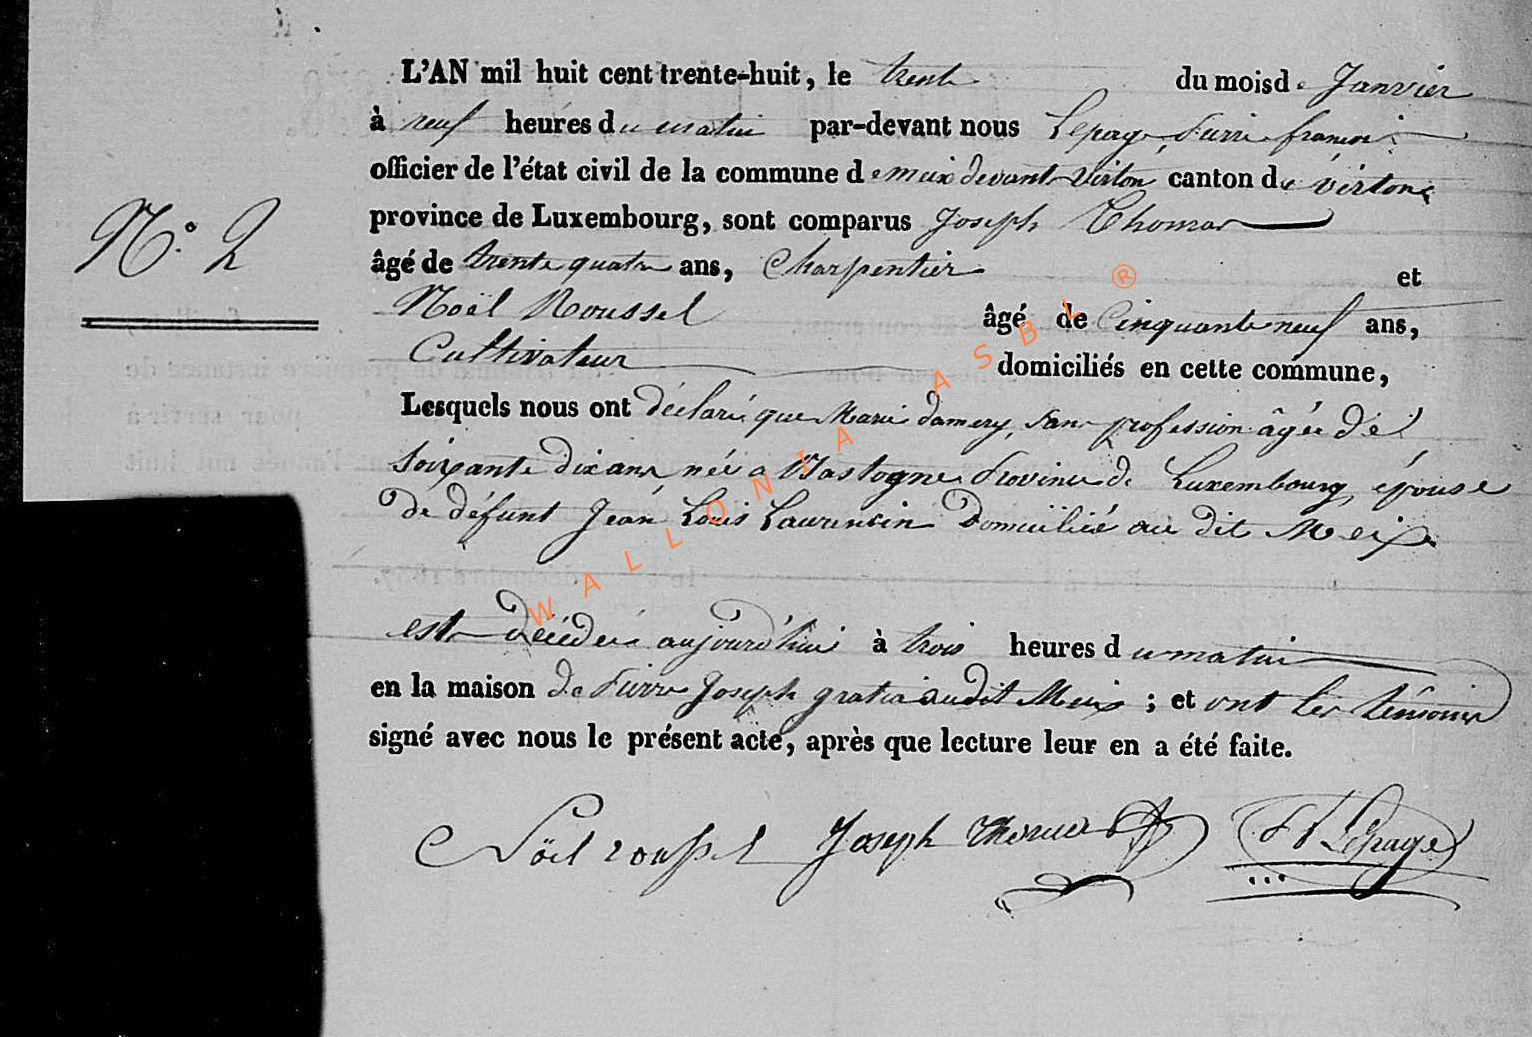 L'AN mil huit cent trente-huit, le trente du mois de Janvier
à neuf heures du matin par-devant nous Lepage, Pierre françois
officier de l'état civil de la commune de meix devant Virton canton de virton
province de Luxembourg, sont comparus Joseph Thomas
N.° 2
âgé de trente quatre ans, Charpentier et
Noël Roussel âgé de Cinquante neuf ans,
Cultivateur domiciliés en cette commune,
Lesquels nous ont déclaré que Marie damery, sans profession âgée de
soixante dix ans née a Bastogne Province de Luxembourg, épouse
de défunt Jean Louis Laurencin Domicilié au dit Meix
est décédée aujourd'hui à trois heures du matin
en la maison de Pierre Joseph gratia audit Meix ; et ont les témoins
signé avec nous le présent acte, après que lecture leur en a été faite.
Noël roussel Joseph Thomas PF Lepage
WALLONIA ASBL ®